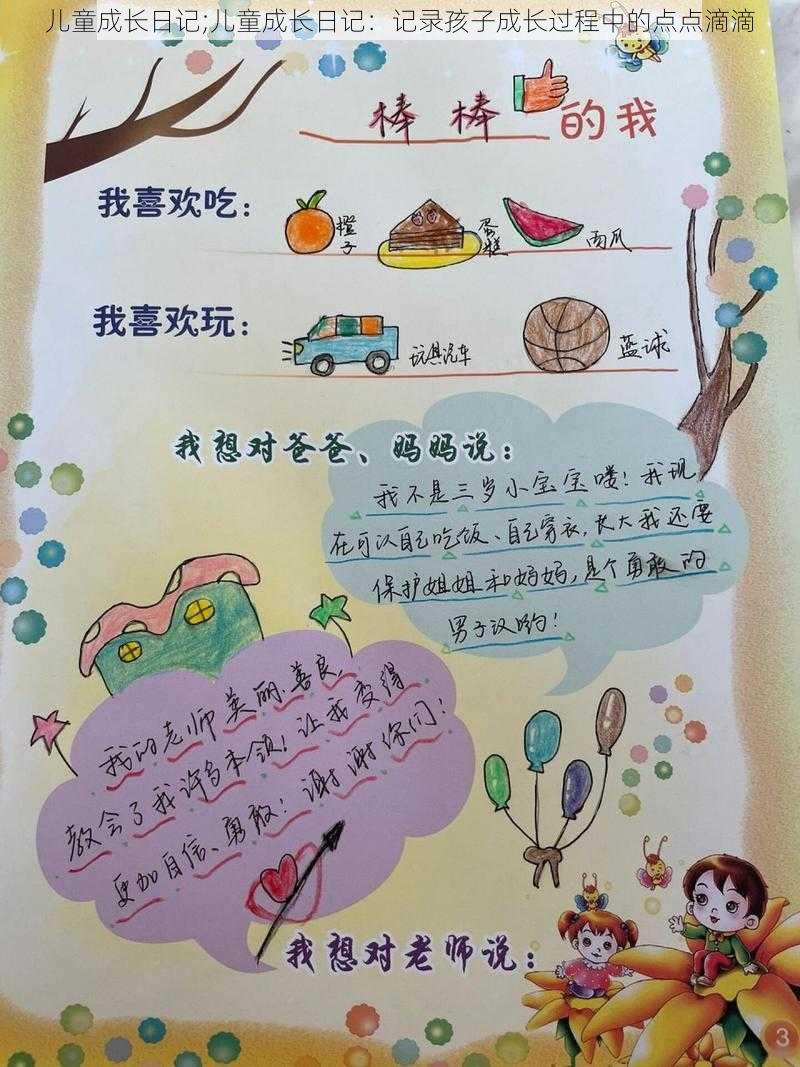 儿童成长日记;儿童成长日记：记录孩子成长过程中的点点滴滴
棒棒的我
我喜欢吃：
橙子
蛋糕
西瓜
我喜欢玩：
玩具汽车
蓝球
我想对爸爸、妈妈说：
我不是三岁小宝宝喽！我现
在可以自己吃饭、自己穿衣，长大我还要
保护姐姐和妈妈，是个勇敢的
男子汉哟！
我的老师美丽.善良，
教会了我许多本领！让我变得
更加自信、勇敢！谢谢你们！
我想对老师说：
3